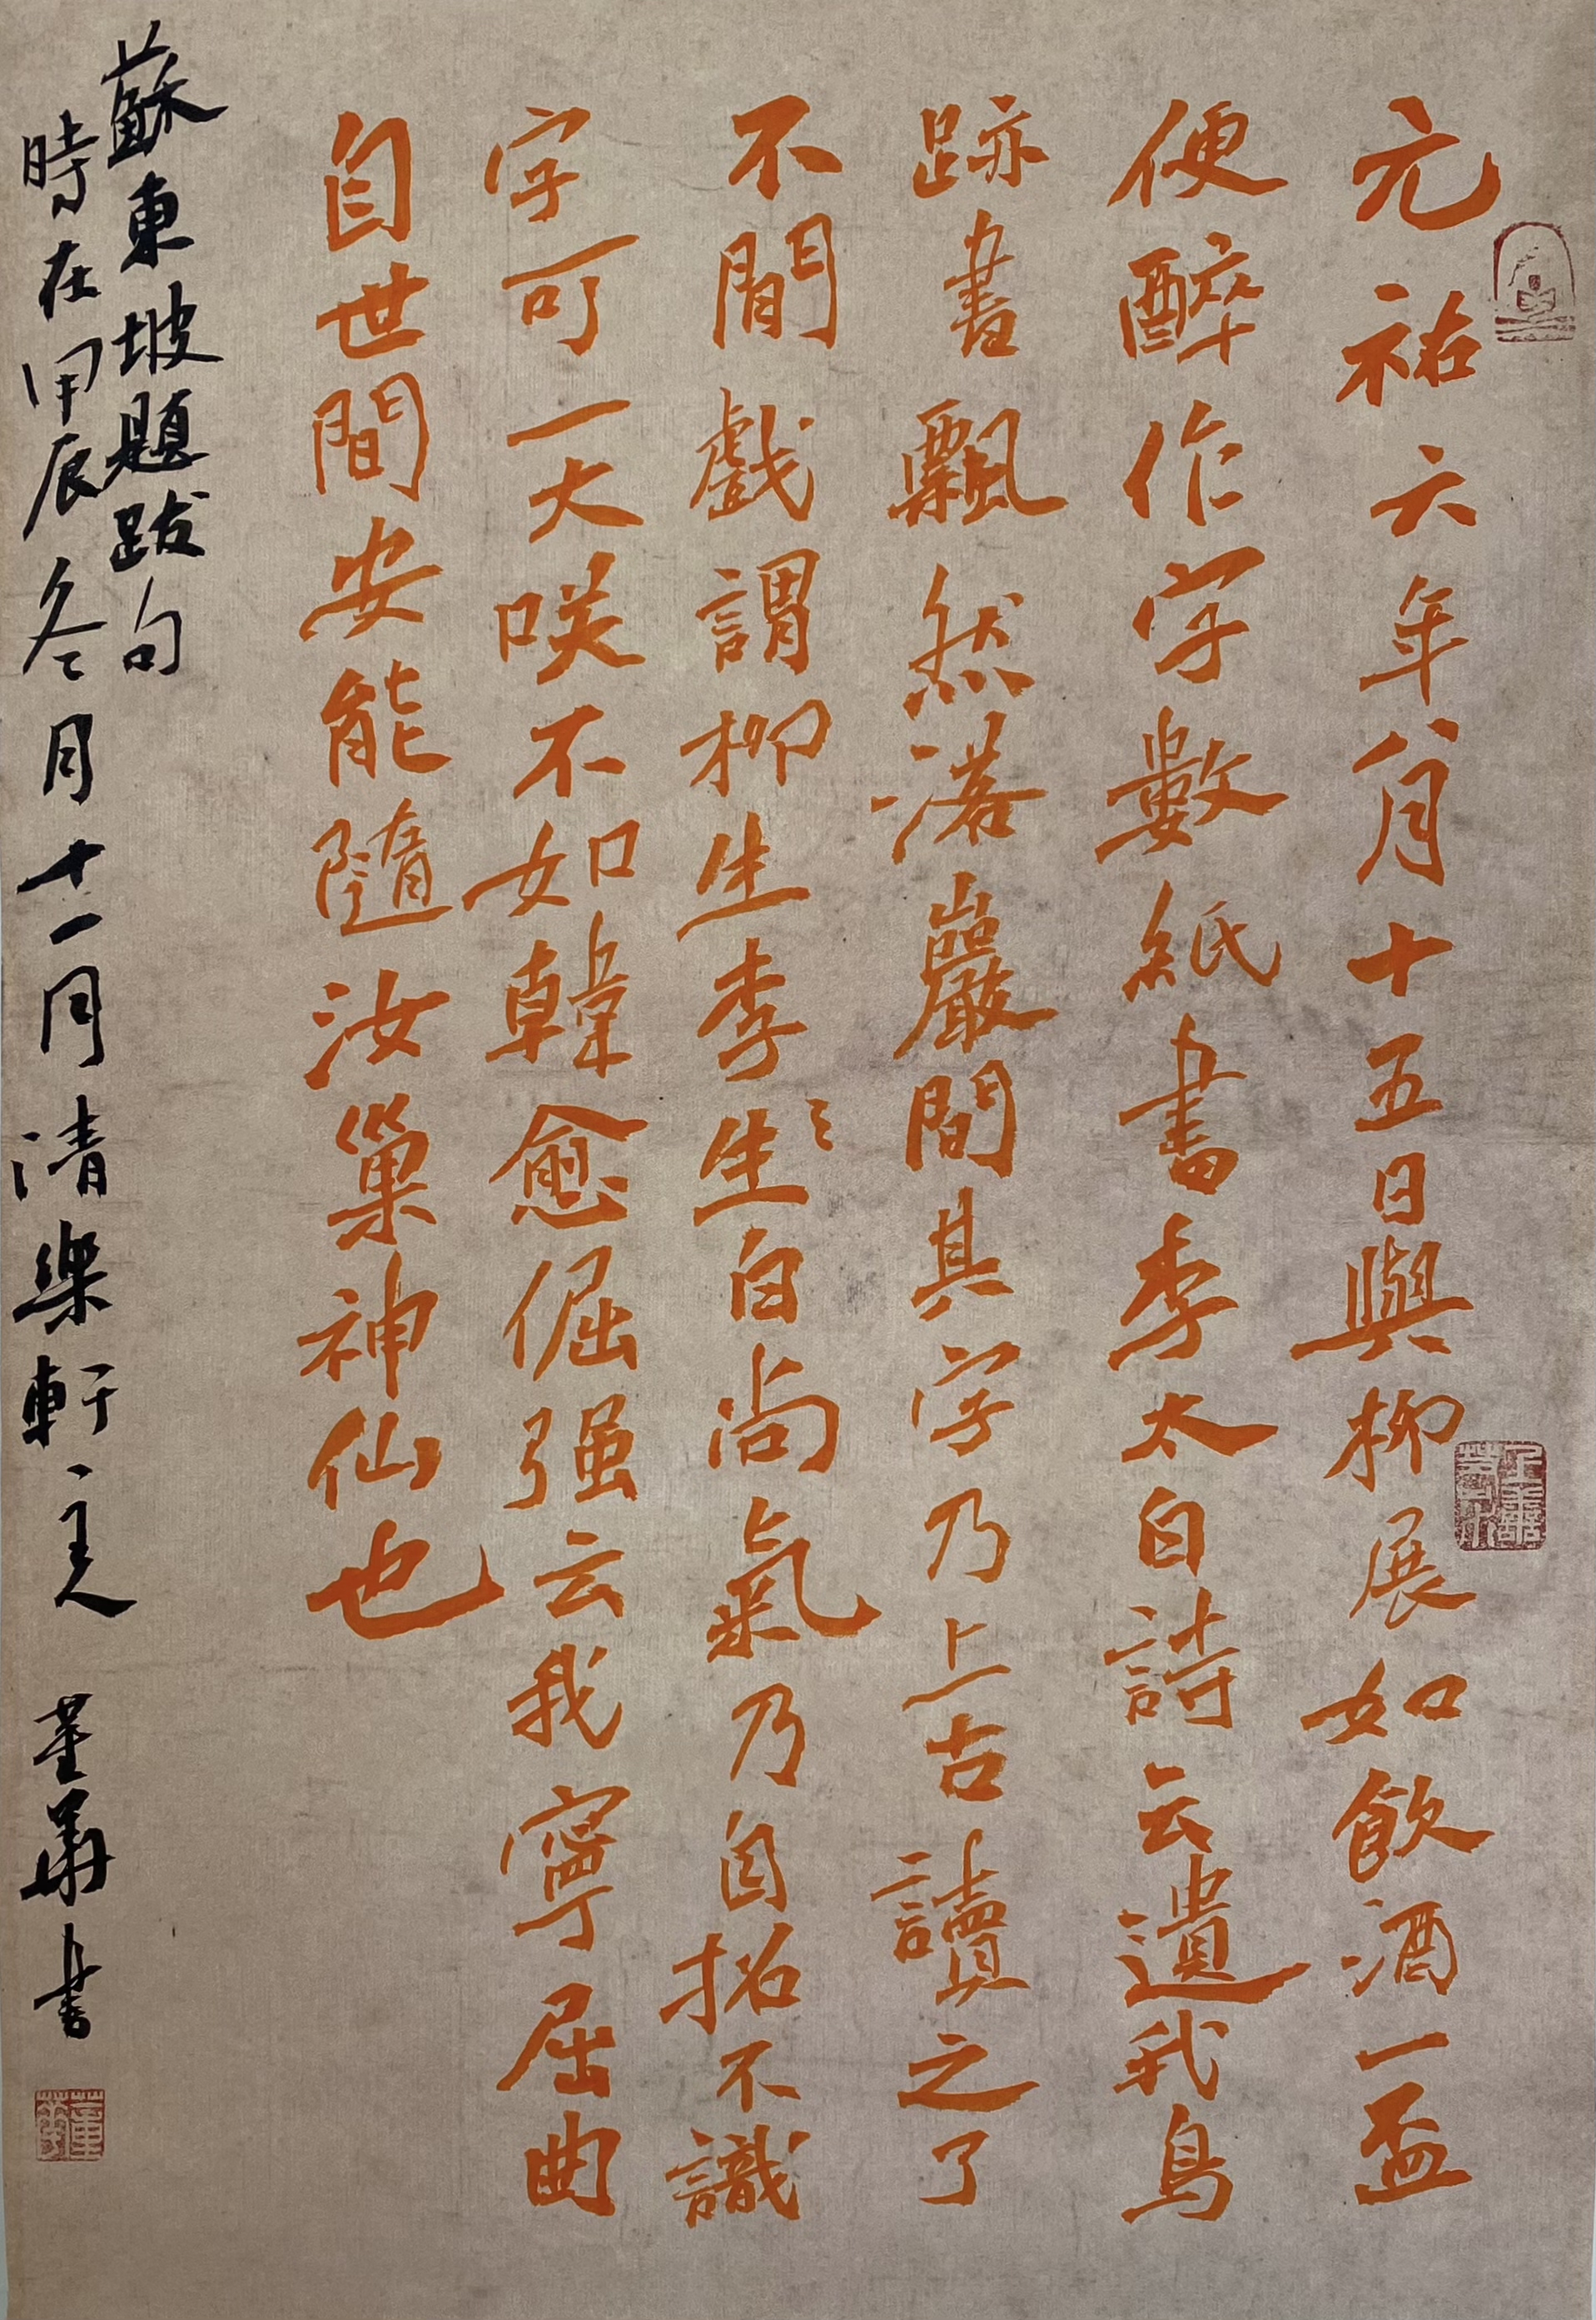 元祐六年八月十五日與柳展如飲酒一盃
便醉作字數紙書李太白詩云遺我鳥
跡書飄然落巖間其字乃上古讀之了
不閒戲謂柳生李生〻白尚氣乃自招不識
字可一大咲不如韓愈倔强云我寧屈曲
自世間安能隨汝巢神仙也
蘇東坡題跋句
時在甲辰冬月十一月清樂軒主人 董華書